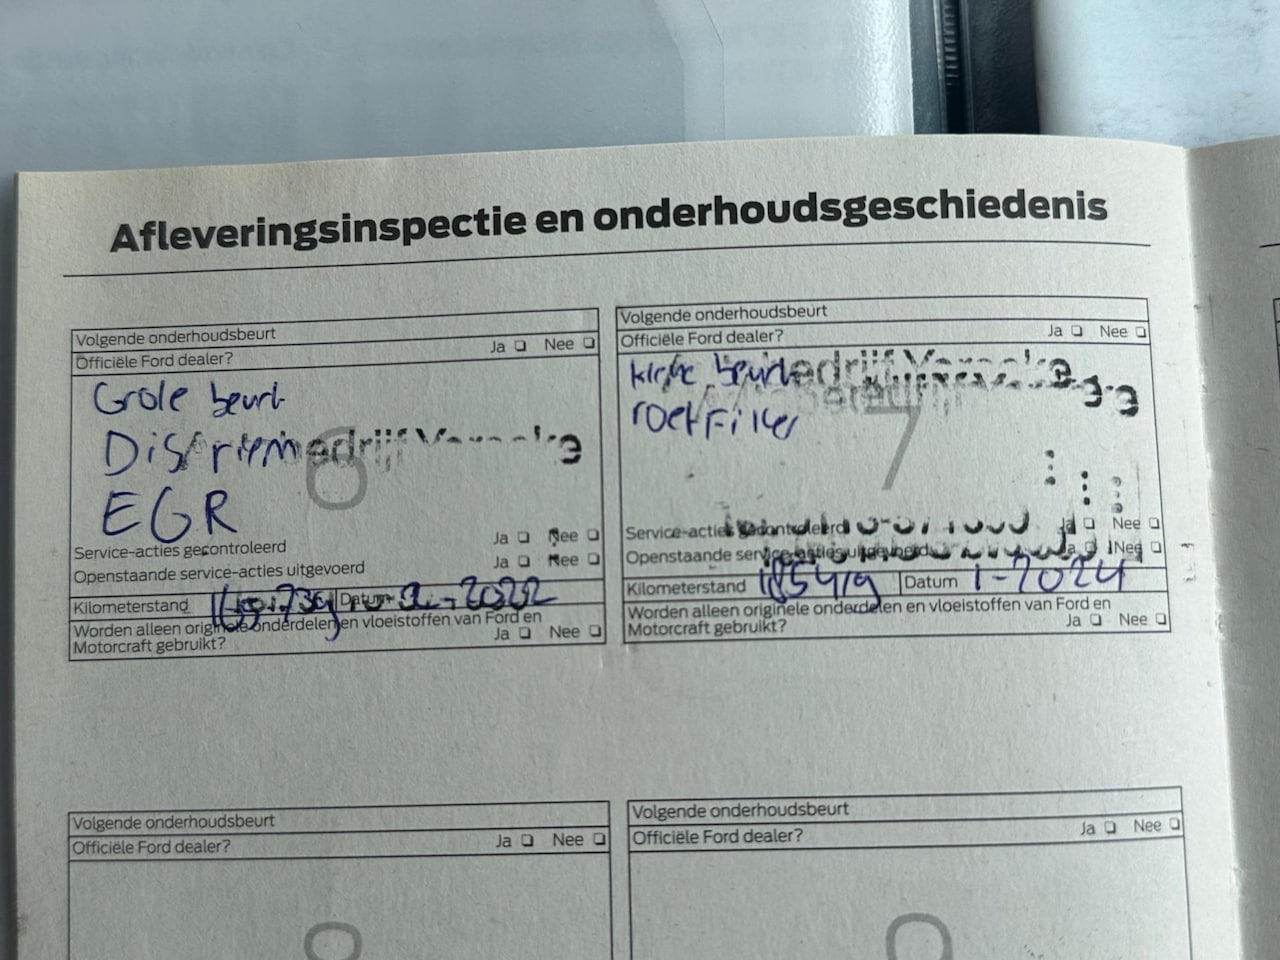 Afleveringsinspectie en onderhoudsgeschiedenis
Volgende onderhoudsbeurt
Officiële Ford dealer? Ja Nee
Grote beurt
Distriem
EGR
6
Service-acties gecontroleerd Ja Nee
Openstaande service-acties uitgevoerd Ja Nee
Kilometerstand Datum 2022
Worden alleen originele onderdelen en vloeistoffen van Ford en
Motorcraft gebruikt? Ja Nee
Volgende onderhoudsbeurt
Officiële Ford dealer? Ja Nee
kleine beurt
roetFilter
7
Service-acties gecontroleerd Ja Nee
Openstaande service-acties uitgevoerd Ja Nee
Kilometerstand 185419 Datum 1-2024
Worden alleen originele onderdelen en vloeistoffen van Ford en
Motorcraft gebruikt? Ja Nee
Volgende onderhoudsbeurt
Officiële Ford dealer? Ja Nee
Volgende onderhoudsbeurt
Officiële Ford dealer? Ja Nee